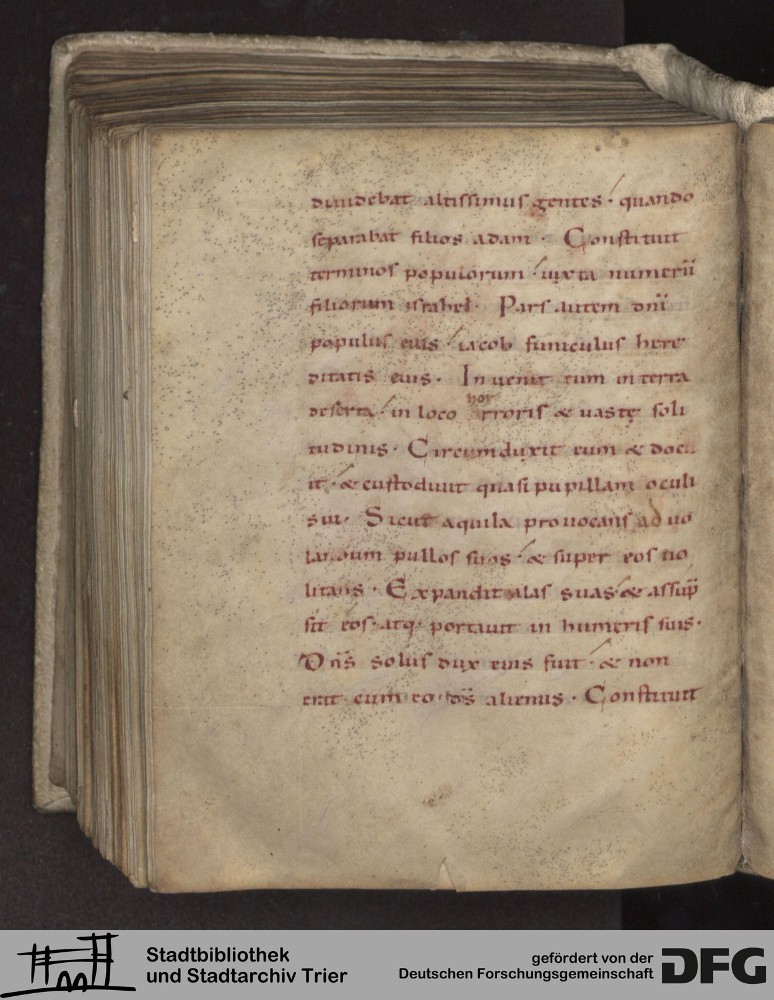 diuidebat altissimus gentes · quando
separabat filios adam · Constituit
terminos populorum · iuxta numerū
filiorum israhel · Pars autem dn̄i
populus eius · iacob funiculus here
ditatis eius · Inuenit eum in terra
deserta · in loco
hor
rroris & uastę soli
tudinis · Circumduxit eum & docu
it · & custodiuit quasi pupillam oculi
sui · Sicut aquila prouocans ad uo
landum pullos suos · & super eos uo
litans · Expandit alas suas · & assūp
sit eos · atq· portauit in humeris suis ·
Dn̄s solus dux eius fuit · & non
erat cum eo · ds̄ alienus · Constituit
Stadtbibliothek
und Stadtarchiv Trier
gefördert von der
Deutschen Forschungsgemeinschaft
DFG